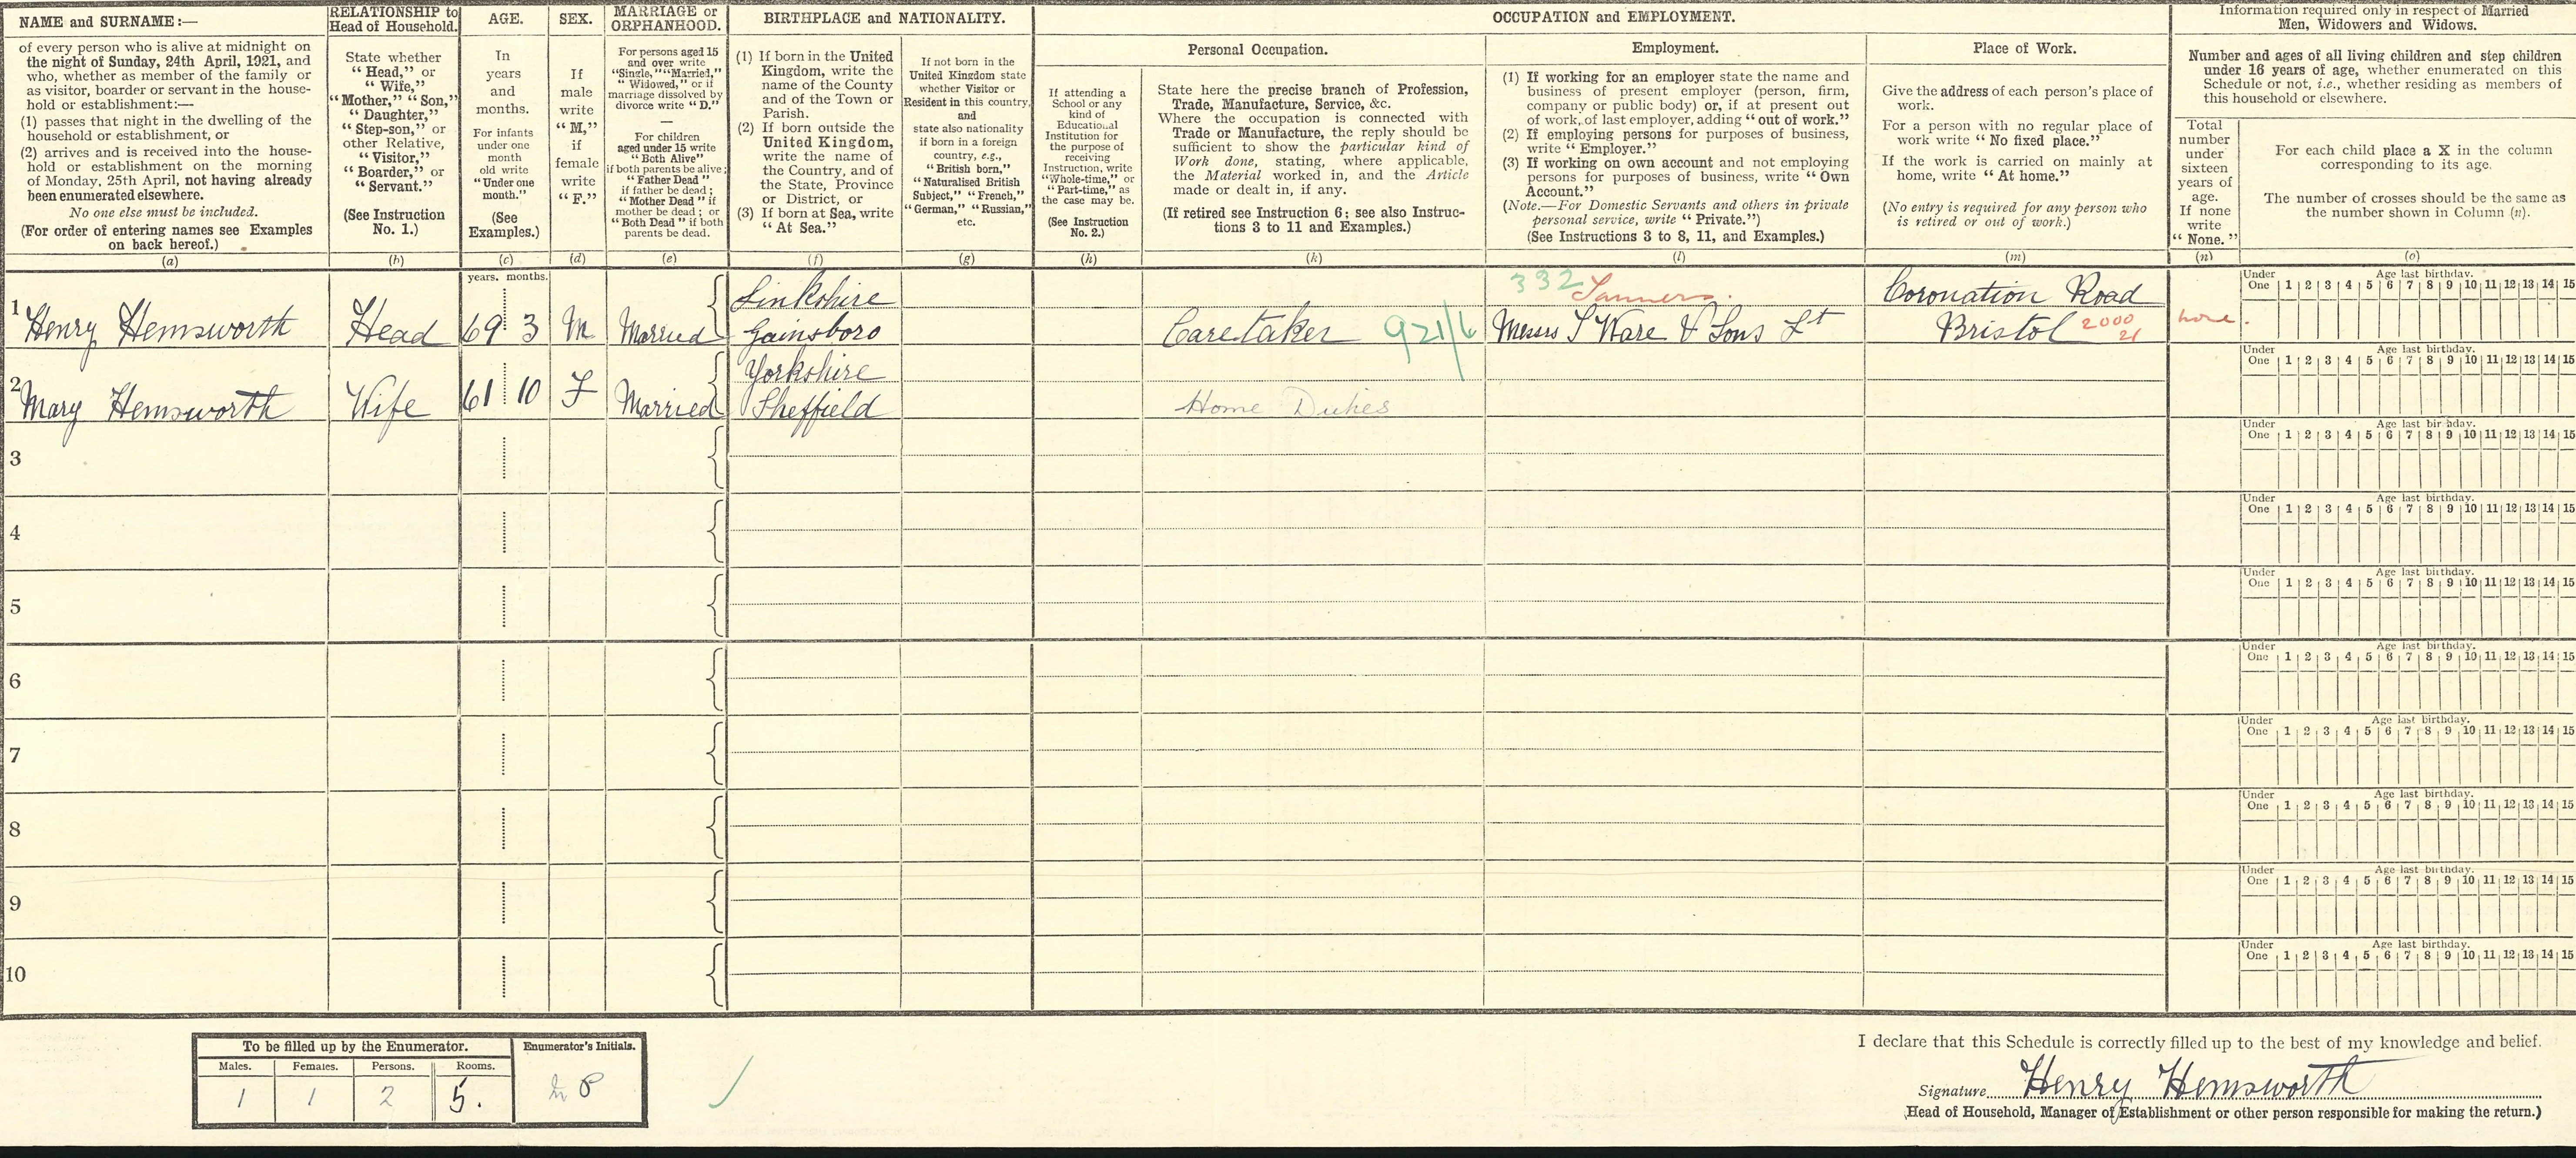 NAME and SURNAME:—
of every person who is alive at midnight on
the night of Sunday, 24th April, 1921, and
who, whether as member of the family or
as visitor, boarder or servant in the house-
hold or establishment:—
(1) passes that night in the dwelling of the
household or establishment, or
(2) arrives and is received into the house-
hold or establishment on the morning
of Monday, 25th April, not having already
been enumerated elsewhere.
No one else must be included.
(For order of entering names see Examples
on back hereof.)
(a)
RELATIONSHIP to
Head of Household.
State whether
"Head," or
"Wife,"
"Mother," "Son,"
"Daughter,"
"Step-son," or
other Relative,
"Visitor,"
"Boarder," or
"Servant."
(See Instruction
No. 1.)
(b)
AGE.
In
years
and
months.
For infants
under one
month
old write
"Under one
month."
(See
Examples.)
(c)
SEX.
If
male
write
"M,"
if
female
write
"F."
(d)
MARRIAGE or
ORPHANHOOD.
For persons aged 15
and over write
"Single," "Married,"
"Widowed," or if
marriage dissolved by
divorce write "D."
—
For children
aged under 15 write
"Both Alive"
if both parents be alive;
"Father Dead"
if father be dead;
"Mother Dead" if
mother be dead; or
"Both Dead" if both
parents be dead.
(e)
BIRTHPLACE and NATIONALITY.
(1) If born in the United
Kingdom, write the
name of the County
and of the Town or
Parish.
(2) If born outside the
United Kingdom,
write the name of
the Country, and of
the State, Province
or District, or
(3) If born at Sea, write
"At Sea."
(f)
If not born in the
United Kingdom state
whether Visitor or
Resident in this country,
and
state also nationality
if born in a foreign
country, e.g.,
"British born,"
"Naturalised British
Subject," "French,"
"German," "Russian,"
etc.
(g)
OCCUPATION and EMPLOYMENT.
If attending a
School or any
kind of
Educational
Institution for
the purpose of
receiving
Instruction, write
"Whole-time," or
"Part-time," as
the case may be.
(See Instruction
No. 2.)
(h)
Personal Occupation.
State here the precise branch of Profession,
Trade, Manufacture, Service, &c.
Where the occupation is connected with
Trade or Manufacture, the reply should be
sufficient to show the particular kind of
Work done, stating, where applicable,
the Material worked in, and the Article
made or dealt in, if any.
(If retired see Instruction 6; see also Instruc-
tions 3 to 11 and Examples.)
(k)
Employment.
(1) If working for an employer state the name and
business of present employer (person, firm,
company or public body) or, if at present out
of work, of last employer, adding "out of work."
(2) If employing persons for purposes of business,
write "Employer."
(3) If working on own account and not employing
persons for purposes of business, write "Own
Account."
(Note.—For Domestic Servants and others in private
personal service, write "Private.")
(See Instructions 3 to 8, 11, and Examples.)
(l)
Place of Work.
Give the address of each person's place of
work.
For a person with no regular place of
work write "No fixed place."
If the work is carried on mainly at
home, write "At home."
(No entry is required for any person who
is retired or out of work.)
(m)
Information required only in respect of Married
Men, Widowers and Widows.
Number and ages of all living children and step children
under 16 years of age, whether enumerated on this
Schedule or not, i.e., whether residing as members of
this household or elsewhere.
Total
number
under
sixteen
years of
age.
If none
write
"None."
(n)
For each child place a X in the column
corresponding to its age.
The number of crosses should be the same as
the number shown in Column (n).
(o)
years. months.
1 Henry Hemsworth Head 69 3 M. Married Linkshire
Gainsboro
Caretaker 921/6
332 Tanners.
Messrs T Ware & Sons Lt
Coronation Road
Bristol 2000
21
none.
Under Age last birthday.
One 1 2 3 4 5 6 7 8 9 10 11 12 13 14 15
2 Mary Hemsworth Wife 61 10 F Married Yorkshire
Sheffield
Home Duties
Under Age last birthday.
One 1 2 3 4 5 6 7 8 9 10 11 12 13 14 15
3
Under Age last birthday.
One 1 2 3 4 5 6 7 8 9 10 11 12 13 14 15
4
Under Age last birthday.
One 1 2 3 4 5 6 7 8 9 10 11 12 13 14 15
5
Under Age last birthday.
One 1 2 3 4 5 6 7 8 9 10 11 12 13 14 15
6
Under Age last birthday.
One 1 2 3 4 5 6 7 8 9 10 11 12 13 14 15
7
Under Age last birthday.
One 1 2 3 4 5 6 7 8 9 10 11 12 13 14 15
8
Under Age last birthday.
One 1 2 3 4 5 6 7 8 9 10 11 12 13 14 15
9
Under Age last birthday.
One 1 2 3 4 5 6 7 8 9 10 11 12 13 14 15
10
Under Age last birthday.
One 1 2 3 4 5 6 7 8 9 10 11 12 13 14 15
To be filled up by the Enumerator.
Males. Females. Persons. Rooms.
1 1 2 5.
Enumerator's Initials.
I declare that this Schedule is correctly filled up to the best of my knowledge and belief.
Signature Henry Hemsworth
(Head of Household, Manager of Establishment or other person responsible for making the return.)